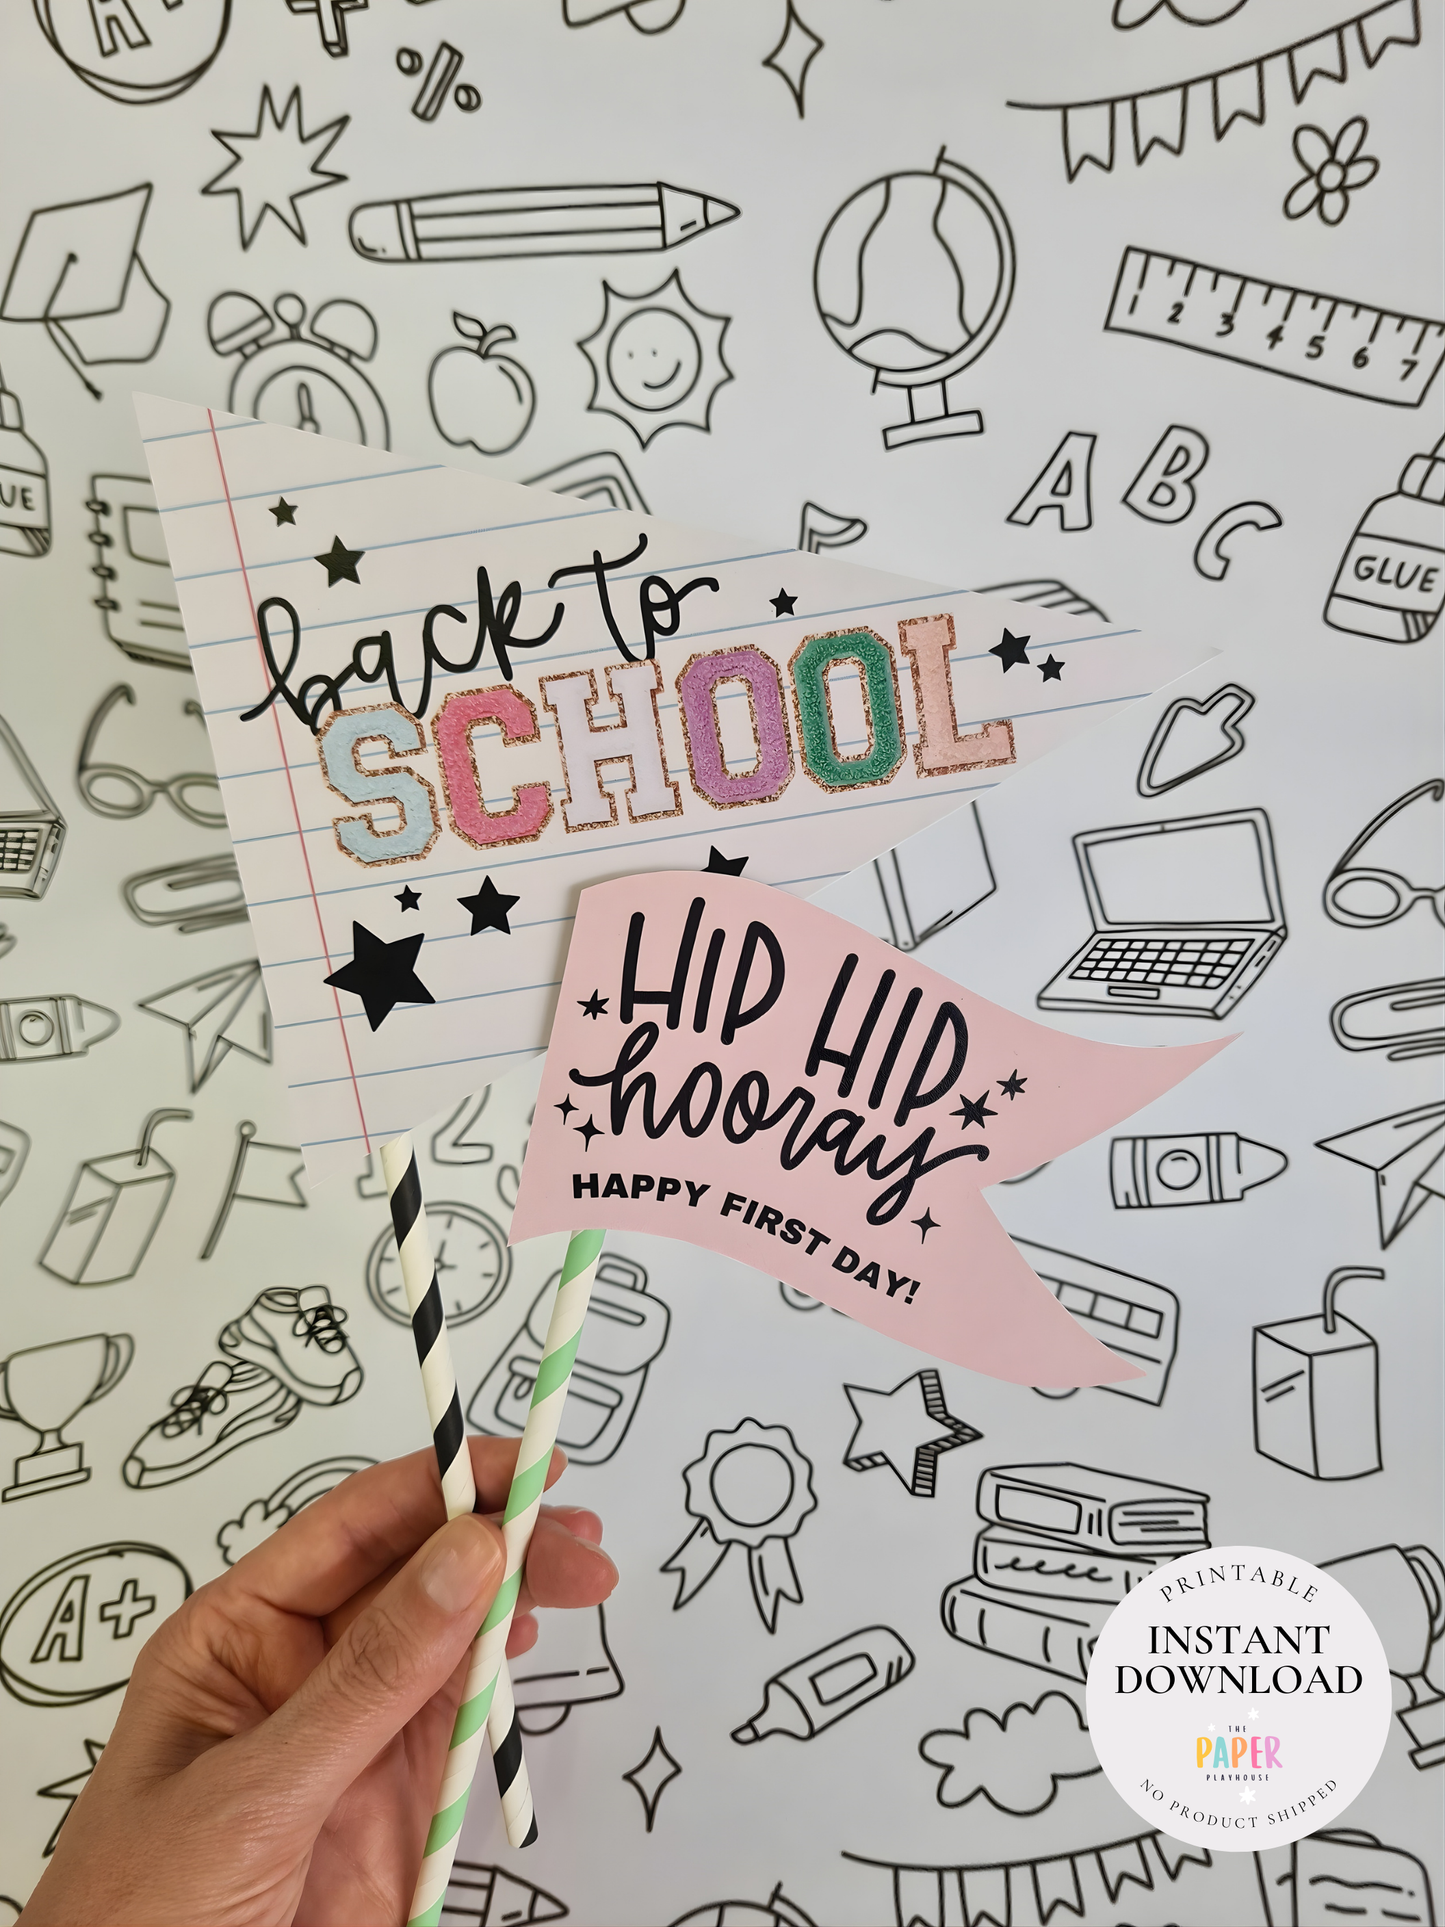 A+
%
1 2 3 4 5 6 7
A B C
GLUE
UE
back to
SCHOOL
HIP HIP
hooray
HAPPY FIRST DAY!
2
A+
PRINTABLE
INSTANT
DOWNLOAD
THE
PAPER
PLAYHOUSE
NO PRODUCT SHIPPED